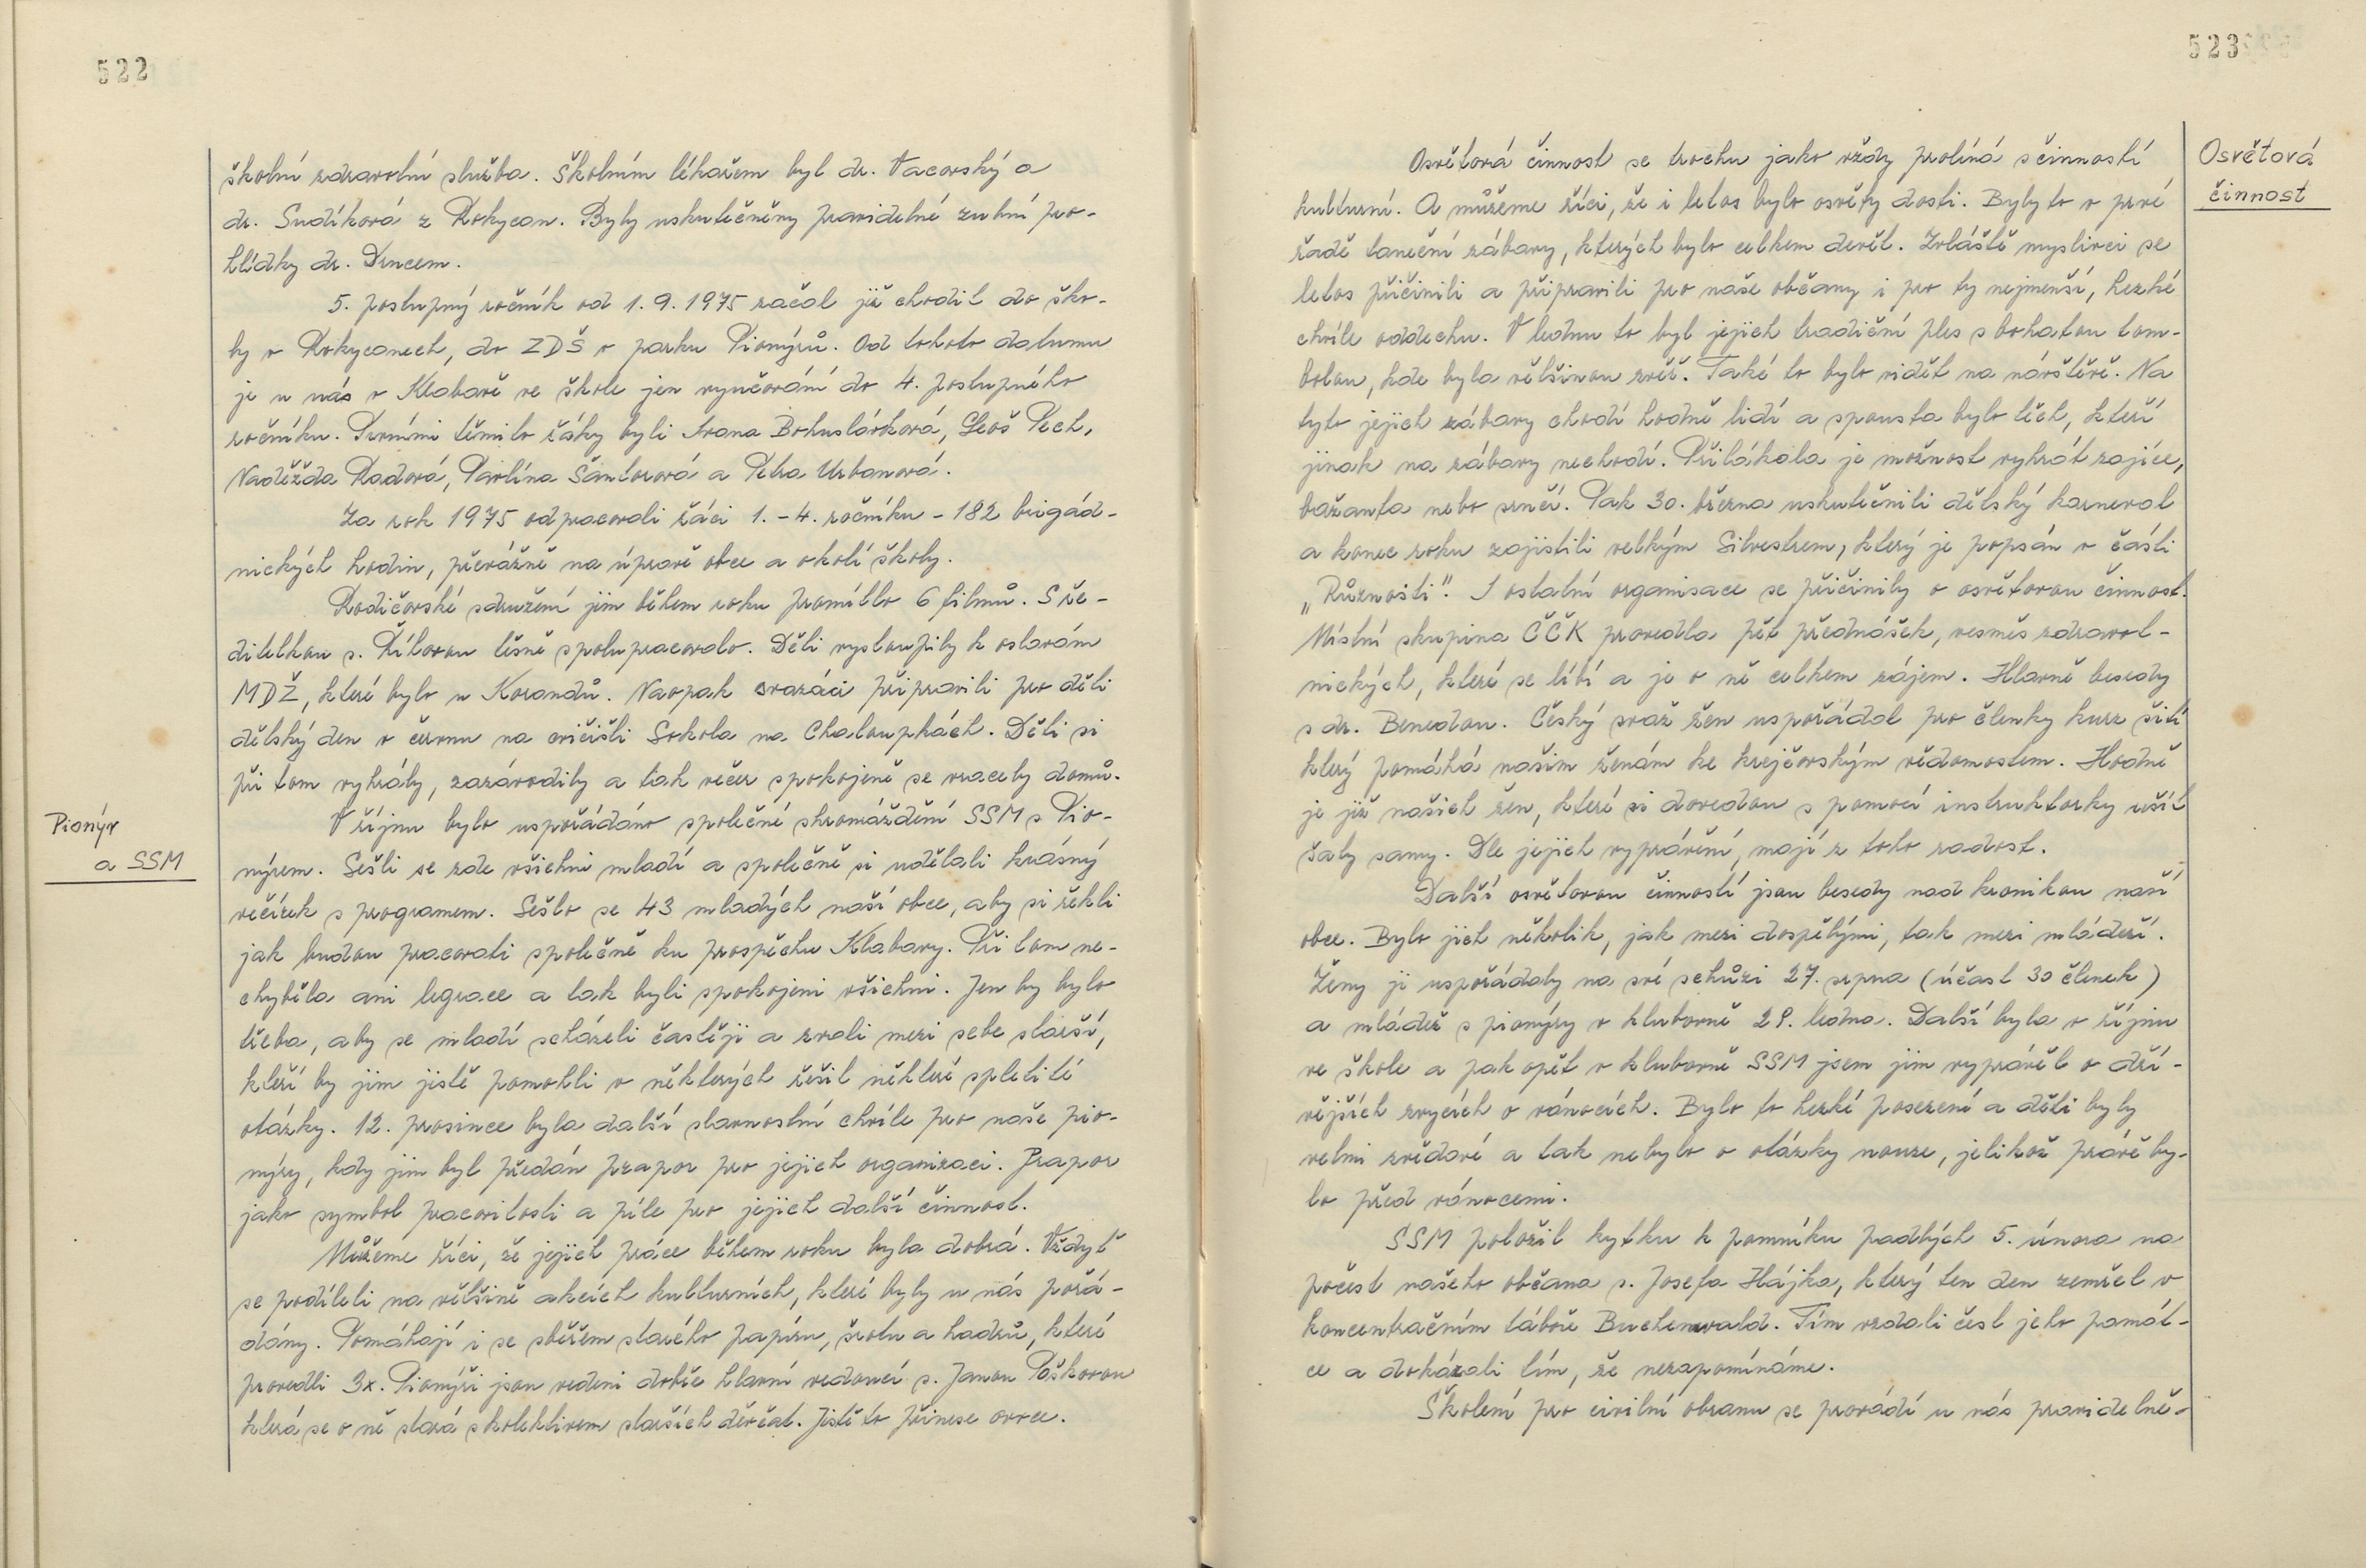 522
školní zdravotní služba. Školním lékařem byl dr. Vacovský a
dr. Sudíková z Rokycan. Byly uskutečněny pravidelné zubní pro-
hlídky dr. Drncem.
5. postupný ročník od 1.9.1975 začal již chodit do ško-
ly v Rokycanech, do ZDŠ v parku Pionýrů. Od tohoto datumu
je u nás v Klabavě ve škole jen vyučování do 4. postupného
ročníku. Prvními těmito žáky byli Ivana Bohuslávková, Leoš Pech,
Naděžda Radová, Pavlína Šantorová a Petra Urbanová.
Za rok 1975 odpracovali žáci 1.-4. ročníku - 182 brigád-
nických hodin, převážně na úpravě obce a okolí školy.
Rodičovské sdružení jim během roku promítlo 6 filmů. S ře-
ditelkou s. Říhovou těsně spolupracovalo. Děti vystoupily k oslavám
MDŽ, které bylo u Korandů. Naopak svazáci připravili pro děti
dětský den v červnu na cvičišti Sokola na Chaloupkách. Děti si
při tom vyhrály, zazávodily a tak večer spokojeně se vracely domů.
Pionýr
a SSM
V říjnu bylo uspořádáno společné shromáždění SSM s Pio-
nýrem. Sešli se zde všichni mladí a společně si udělali krásný
večírek s programem. Sešlo se 43 mladých naší obce, aby si řekli
jak budou pracovati společně ku prospěchu Klabavy. Při tom ne-
chyběla ani legrace a tak byli spokojeni všichni. Jen by bylo
třeba, aby se mladí scházeli častěji a zvali mezi sebe starší,
kteří by jim jistě pomohli v některých řešit některé spletité
otázky. 12. prosince byla další slavnostní chvíle pro naše pio-
nýry, kdy jim byl předán prapor pro jejich organizaci. Prapor
jako symbol pracovitosti a píle pro jejich další činnost.
Můžeme říci, že jejich práce během roku byla dobrá. Vždyť
se podíleli na většině akcích kulturních, které byly u nás pořá-
dány. Pomáhají i se sběrem starého papíru, šrotu a hadrů, které
provedli 3x. Pionýři jsou vedeni dobře hlavní vedoucí s. Janou Poškovou
která se o ně stará s kolektivem starších děvčat. Jistě to přinese ovoce.
523
Osvětová
činnost
Osvětová činnost se trochu jako vždy prolíná s činností
kulturní. A můžeme říci, že i letos bylo osvěty dosti. Byly to v prvé
řadě taneční zábavy, kterých bylo celkem devět. Zvláště myslivci se
letos přičinili a připravili pro naše občany i pro ty nejmenší, hezké
chvíle oddechu. V lednu to byl jejich tradiční ples s bohatou tom-
bolou, kde byla většinou zvěř. Také to bylo vidět na návštěvě. Na
tyto jejich zábavy chodí hodně lidí a spousta bylo těch, kteří
jinak na zábavy nechodí. Přilákala je možnost vyhrát zajíce,
bažanta nebo srnčí. Pak 30. března uskutečnili dětský karneval
a konec roku zajistili velkým Silvestrem, který je popsán v části
„Různosti". I ostatní organisace se přičinily o osvětovou činnost.
Místní skupina ČČK provedla pět přednášek, vesměs zdravot-
nických, které se líbí a je o ně celkem zájem. Hlavně besedy
s dr. Benedou. Český svaz žen uspořádal pro členky kurz šití
který pomáhá našim ženám ke krejčovským vědomostem. Hodně
je již našich žen, které si dovedou s pomocí instruktorky ušít
šaty samy. Dle jejich vyprávění, mají z toho radost.
Další osvětovou činností jsou besedy nad kronikou naší
obce. Bylo jich několik, jak mezi dospělými, tak mezi mládeží.
Ženy ji uspořádaly na své schůzi 27. srpna (účast 30 členek)
a mládež s pionýry v klubovně 29. ledna. Další byla v říjnu
ve škole a pak opět v klubovně SSM jsem jim vyprávěl o dří-
vějších zvycích o vánocích. Bylo to hezké posezení a děti byly
velmi zvědavé a tak nebylo o otázky nouze, jelikož právě by-
lo před vánocemi.
SSM položil kytku k pomníku padlých 5. února na
počest našeho občana s. Josefa Hájka, který ten den zemřel v
koncentračním táboře Buchenwald. Tím vzdali čest jeho památ-
ce a dokázali tím, že nezapomínáme.
Školení pro civilní obranu se provádí u nás pravidelně.